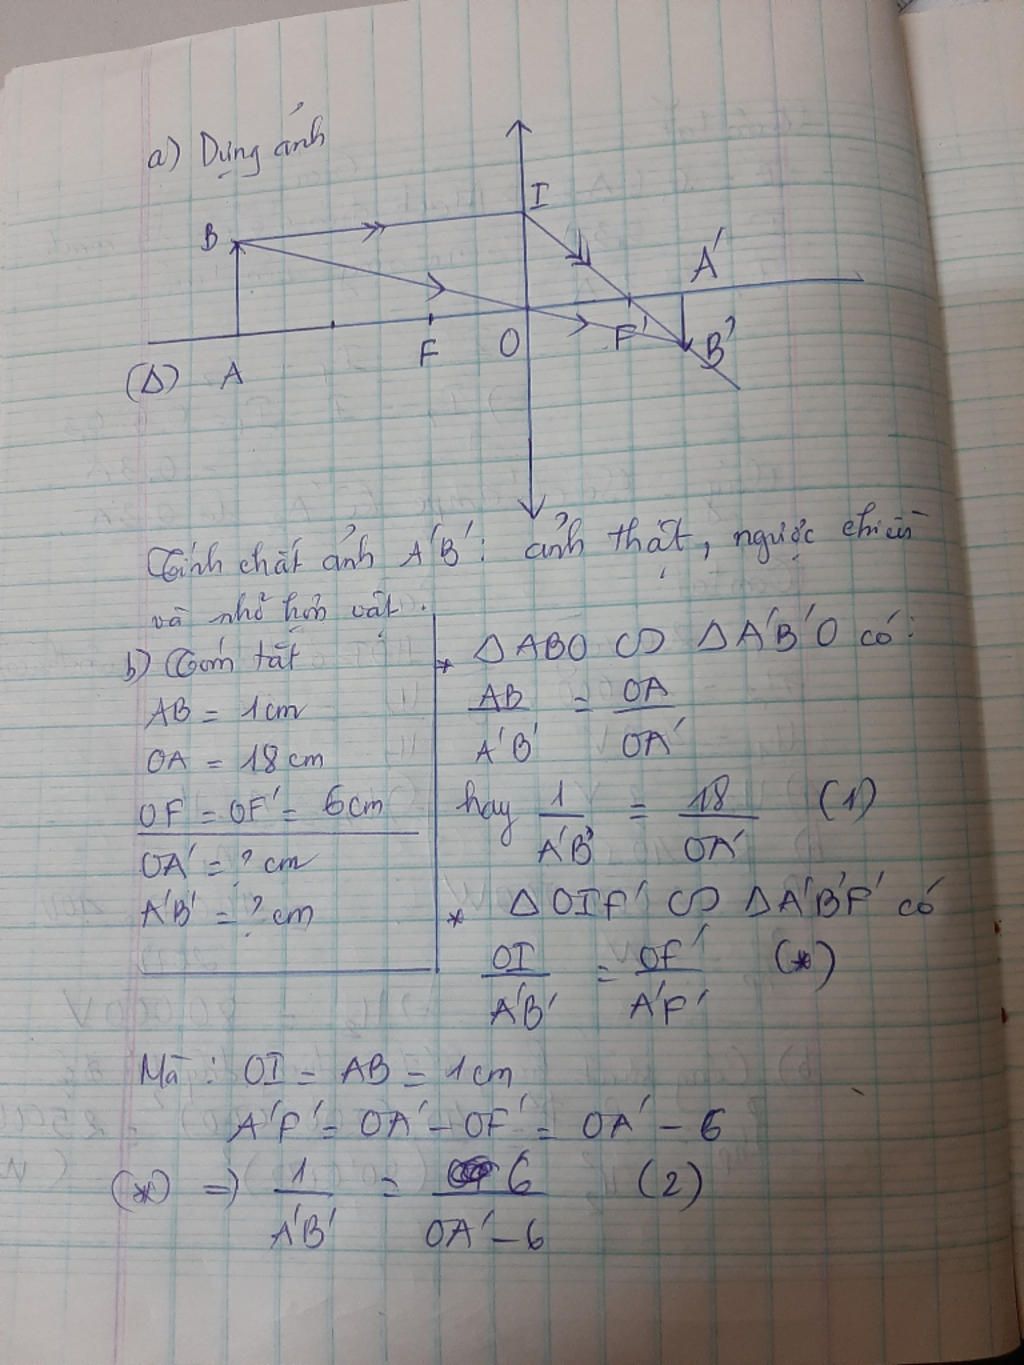 a) Dựng ảnh
I
B
A'
F'
B'
O
F
(Δ) A
Tính chất ảnh A'B': ảnh thật, ngược chiều
và nhỏ hơn vật.
b) Tóm tắt
AB = 1cm
OA = 18cm
OF = OF' = 6cm
OA' = ? cm
A'B' = ? cm
* ΔABO ∽ ΔA'B'O có:
AB / A'B' = OA / OA'
hay 1 / A'B' = 18 / OA' (1)
* ΔOIF' ∽ ΔA'B'F' có
OI / A'B' = OF' / A'F' (*)
Mà: OI = AB = 1cm
A'F' = OA' - OF' = OA' - 6
(*) => 1 / A'B' = 6 / OA' - 6 (2)